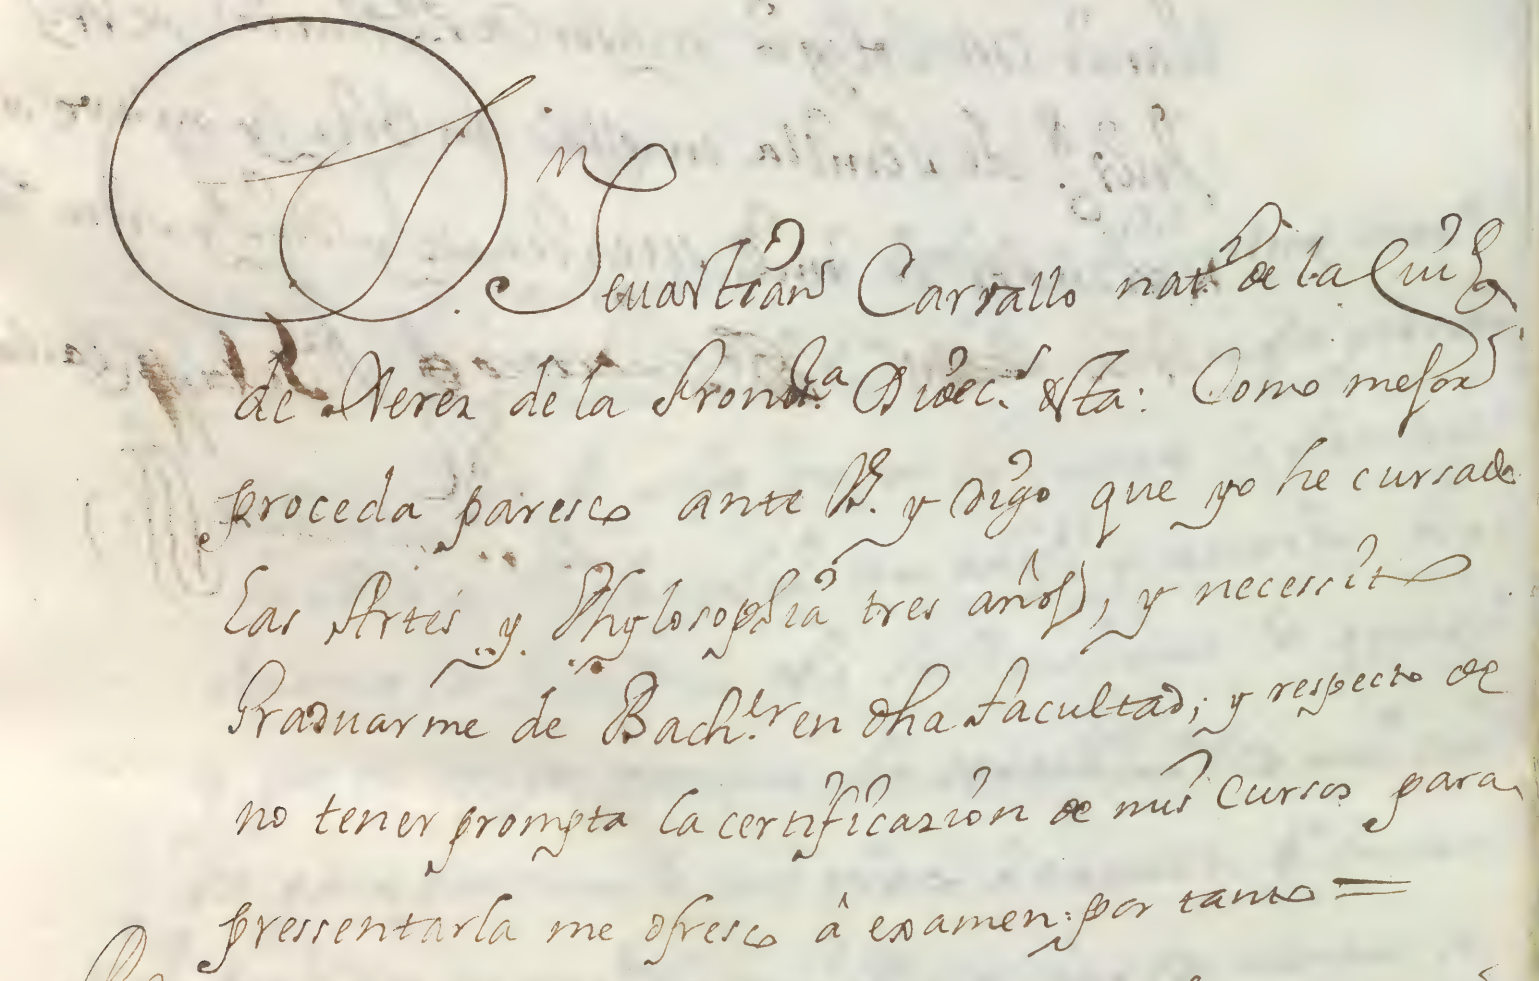 D.n Sevastian Carrallo nat.l de la Ciud.
de Xerez de la Front.a Diöec.s dsta: Como mejor
proceda paresco ante V. y digo que yo he cursado
Las Artes y Phylosophia tres años, y necessito
Graduarme de Bach.er en dha facultad; y respecto de
no tener prompta la certificazion de mis Cursos para
pressentarla me ofresco â examen: por tanto =